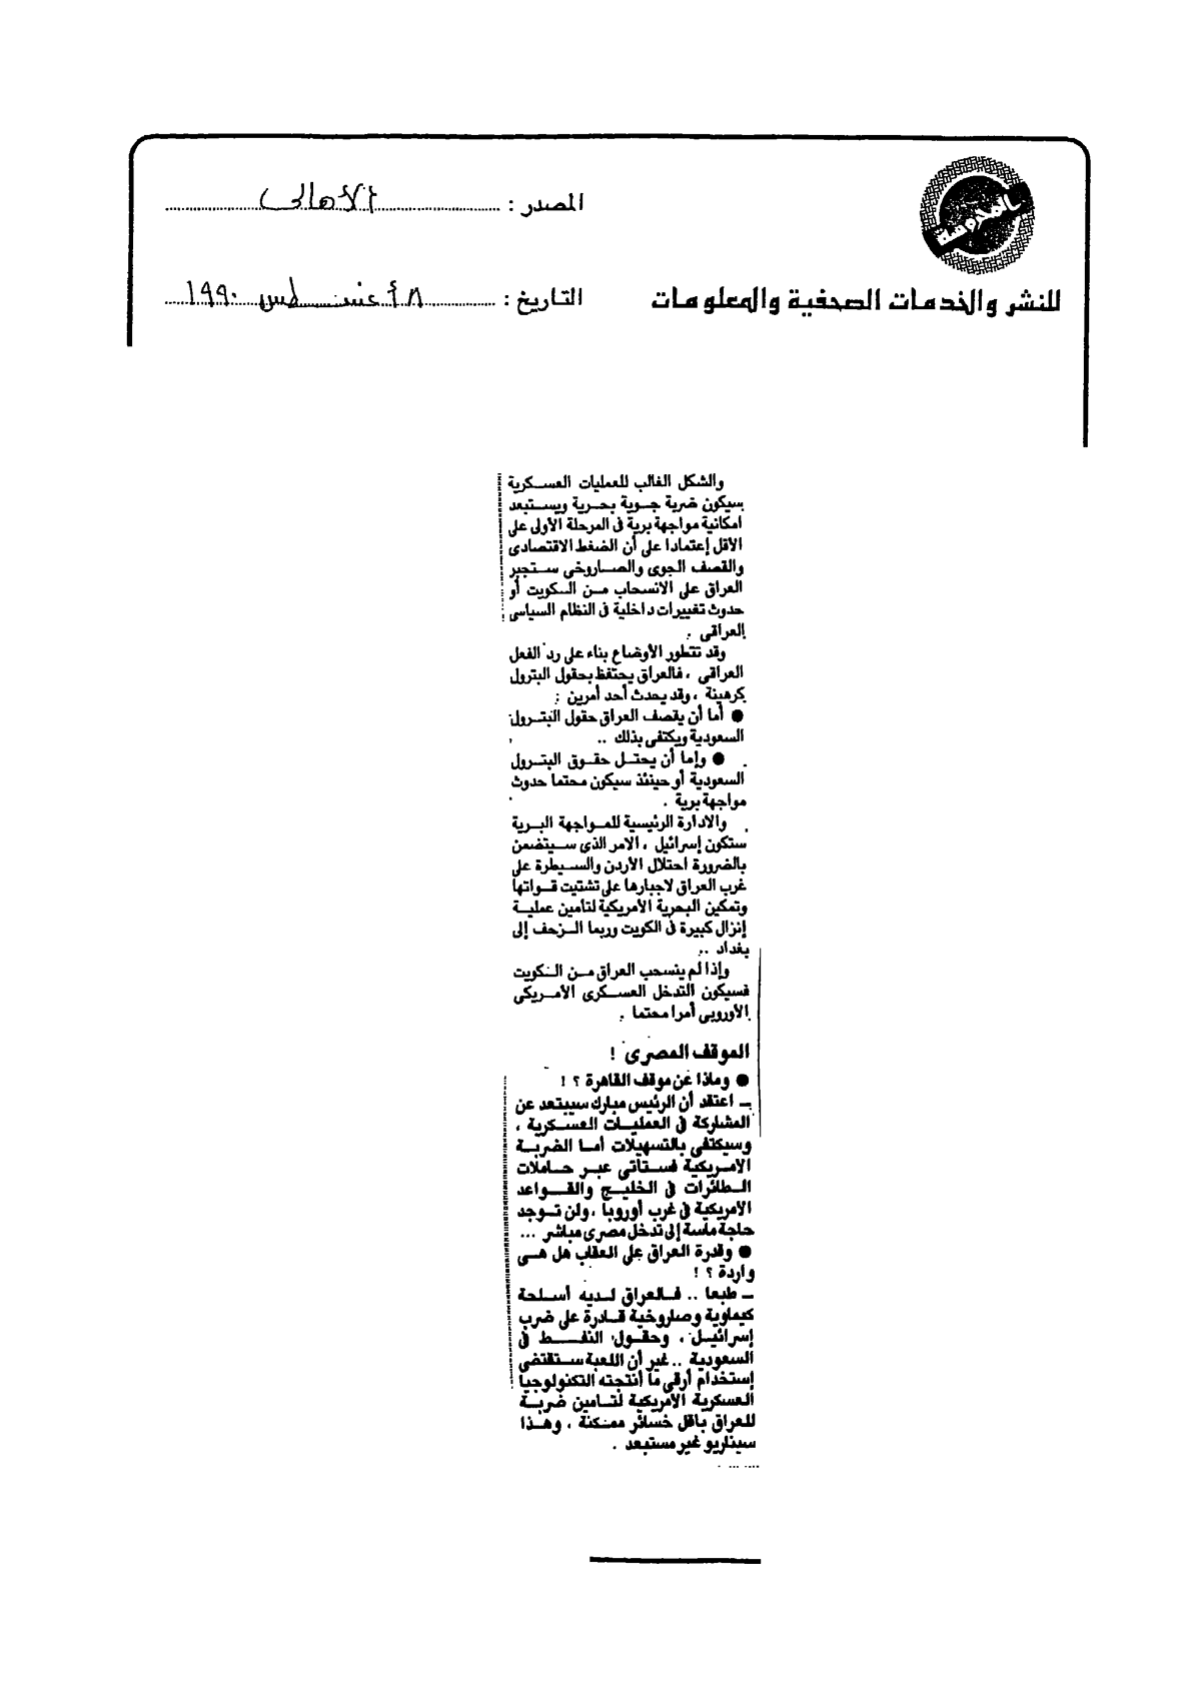 المصدر : الأهالى
التاريخ : ٨ أغسطس ١٩٩٠
للنشر والخدمات الصحفية والمعلومات
والشكل الغالب للعمليات العسكرية
سيكون ضربة جوية بحرية ويستبعد
امكانية مواجهة برية فى المرحلة الأولى على
الأقل إعتمادا على أن الضغط الاقتصادى
والقصف الجوى والصاروخى ستجبر
العراق على الانسحاب من الكويت أو
حدوث تغييرات داخلية فى النظام السياسى
العراقى .
وقد تتطور الأوضاع بناء على رد الفعل
العراقى ، فالعراق يحتفظ بحقول البترول
كرهينة ، وقد يحدث أحد أمرين :
● أما أن يقصف العراق حقول البترول
السعودية ويكتفى بذلك ..
● وإما أن يحتل حقوق البترول
السعودية أو حينئذ سيكون محتما حدوث
مواجهة برية .
والادارة الرئيسية للمواجهة البرية
ستكون إسرائيل ، الامر الذى سيتضمن
بالضرورة احتلال الأردن والسيطرة على
غرب العراق لاجبارها على تشتيت قواتها
وتمكين البحرية الأمريكية لتامين عملية
إنزال كبيرة فى الكويت وربما الزحف إلى
بغداد ..
وإذا لم ينسحب العراق من الكويت
فسيكون التدخل العسكرى الأمريكى
الأوروبى أمرا محتما .
الموقف المصرى !
● وماذا عن موقف القاهرة ؟ !
ــ اعتقد أن الرئيس مبارك سيبتعد عن
المشاركة فى العمليات العسكرية ،
وسيكتفى بالتسهيلات أما الضربة
الامريكية فستاتى عبر حاملات
الطائرات فى الخليج والقواعد
الأمريكية فى غرب أوروبا ، ولن توجد
حاجة ماسة إلى تدخل مصرى مباشر ...
● وقدرة العراق على العقاب هل هى
واردة ؟ !
ــ طبعا .. فالعراق لديه أسلحة
كيماوية وصاروخية قادرة على ضرب
إسرائيل ، وحقول النفط فى
السعودية .. غير أن اللعبة ستقتضى
إستخدام أرقى ما أنتجته التكنولوجيا
العسكرية الأمريكية لتامين ضربة
للعراق باقل خسائر ممكنة ، وهذا
سيناريو غير مستبعد .